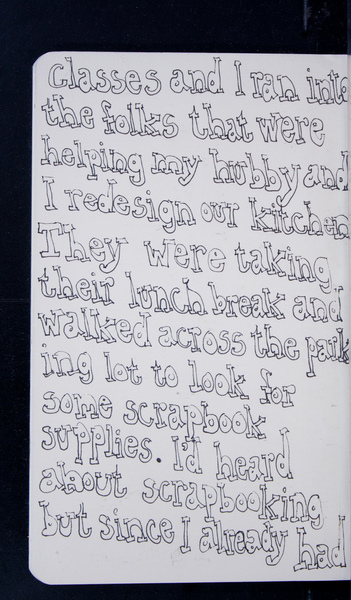 classes and I ran into
the folks that were
helping my hubby and
I redesign our kitchen
They were taking
their lunch break and
walked across the park
ing lot to look for
some scrapbook
supplies. I'd heard
about scrapbooking
but since I already had